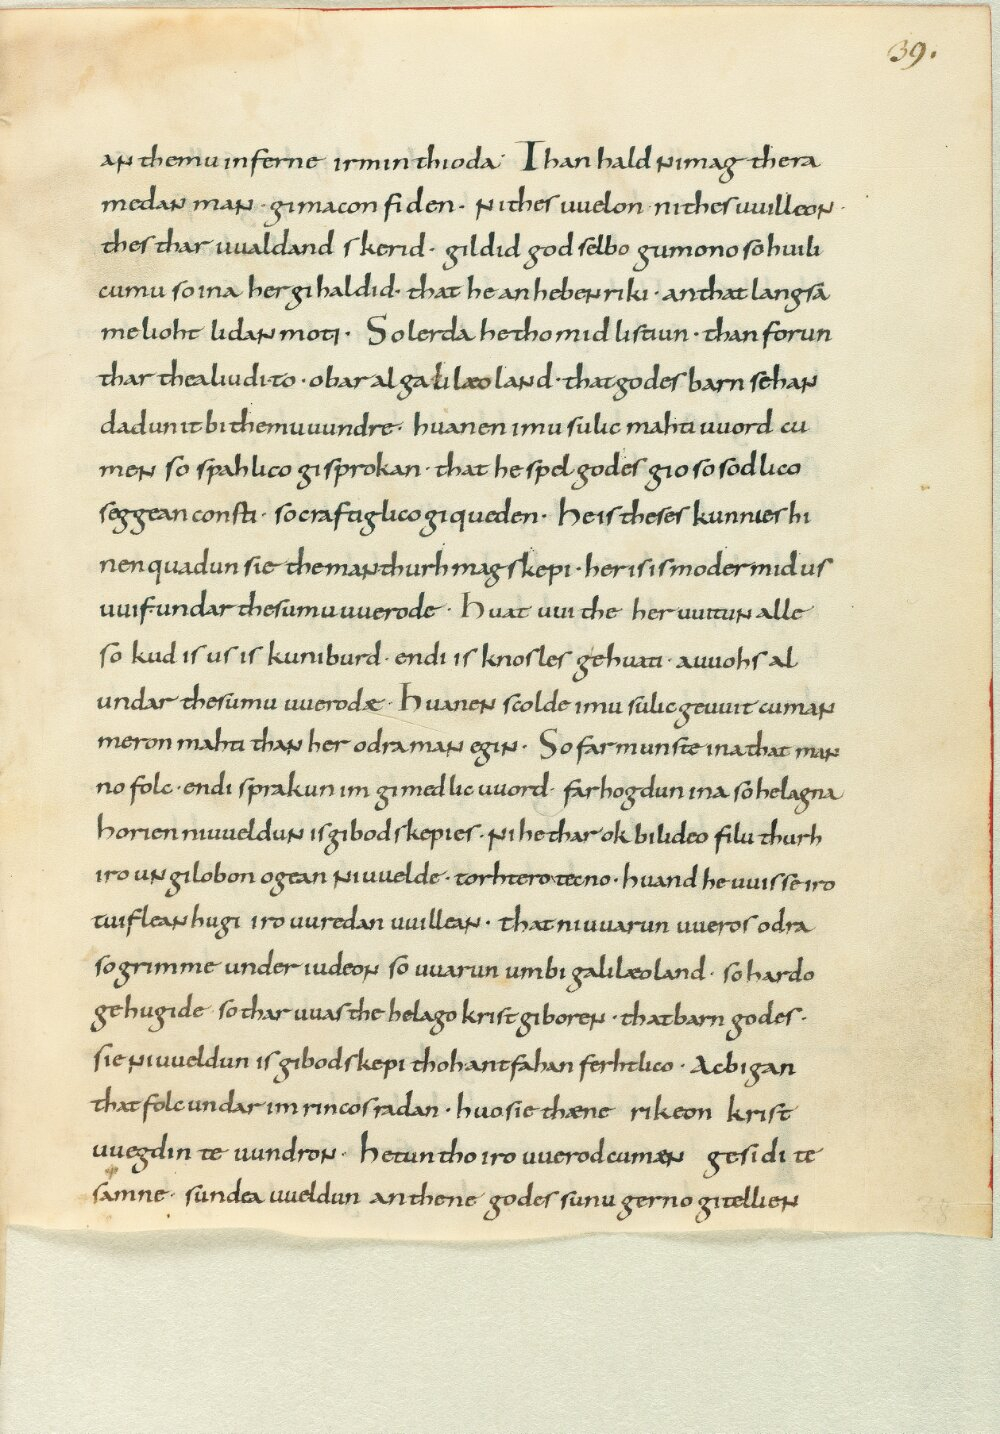 39.
an themu inferne irminthioda· Than hald ni mag thera
medan man· gimacon fiden· ni thes uuelon ni thes uuilleon·
thes thar uualdand skerid· gildid god selbo gumono so huuili
cumu so ina her gihaldid· that he an hebenriki· an that langsā
me lioht lidan moti· So lerda he tho mid listiun· than forun
thar thea liudi to· obar al galilæo land· that godes barn sehan
dadun it bi themu uundre· huanen imu sulic mahti uuord cu
men so spahlico gisprokan· that he spel godes gio so sodlico
seggean consti· so craftiglico giqueden· he is theses kunnies hi
nen quadun sie the man thurh magskepi· her is is moder mid us
uuif undar thesumu uuerode· huat uui the her uuitun alle
so kud is us is kuniburd· endi is knosles gehuati· auuohs al
undar thesumu uuerodæ· huanen scolde imu sulic geuuit cuman
meron mahti than her odra man egin· So farmunste ina that man
no folc· endi sprakun im gimedlic uuord· farhogdun ina so helagna
horien ni uueldun is gibodskepies· ni he thar ok bilideo filu thurh
iro ungilobon ogean ni uuelde· torhtero tecno· huand he uuisse iro
tuiflean hugi iro uuredan uuillean· that ni uuarun uueros odra
so grimme under iudeon so uuarun umbi galilæo land· so hardo
gehugide so thar uuas the helago krist giboren· that barn godes·
sie ni uueldun is gibodskepi thoh antfahan ferhtlico· Ac bigan
that folc undar im rincos radan· huo sie thæne rikeon krist
uuegdin te uundron· hetun tho iro uuerod cumæn gesidi te
samne· sundea uueldun an thene godes sunu gerno gitellien